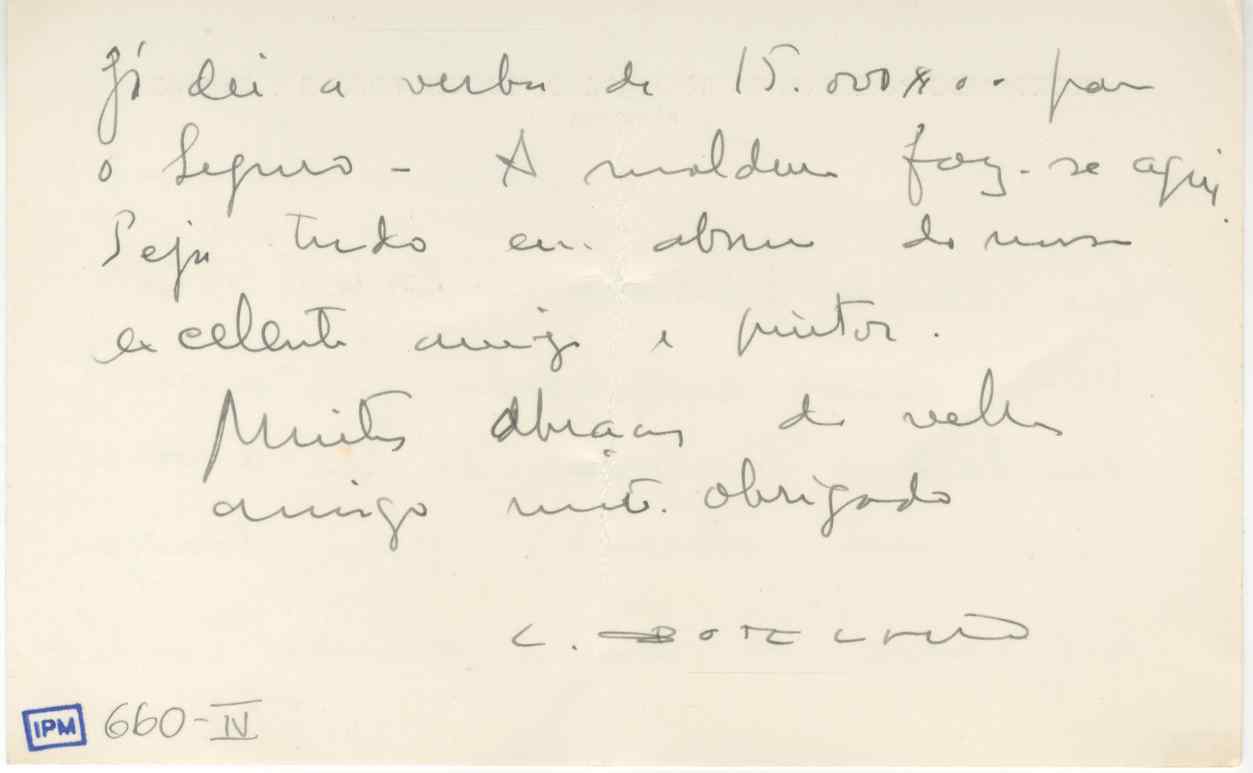 Já dei a verba de 15.000$00 para
o Seguro - A moldura faz-se aqui.
Seja tudo em abono do nosso
excelente amigo e pintor.
Muitos abraços do velho
amigo muito obrigado
C. BOTELHO
IPM 660-IV